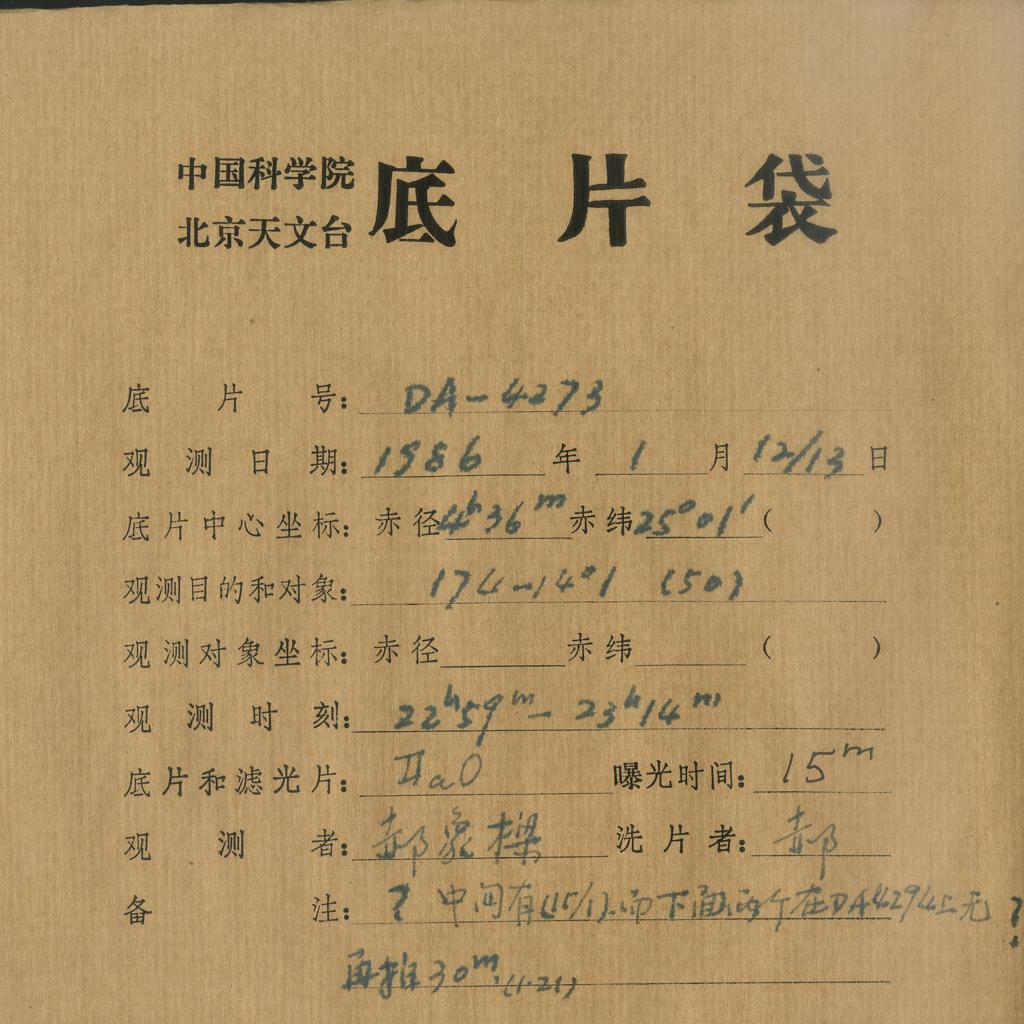 中国科学院
北京天文台 底片袋
底片号: DA-4273
观测日期: 1986年1月12/13日
底片中心坐标: 赤径4h36m赤纬25°01′( )
观测目的和对象: 174-14°1 (50)
观测对象坐标: 赤径 赤纬 ( )
观测时刻: 22h59m-23h14m
底片和滤光片: IIaO 曝光时间: 15m
观测者: 郝象樑 洗片者: 郝
备注: ? 中间有(15/1).而下面两个在DA4294上无?
再推30m.(1.21)